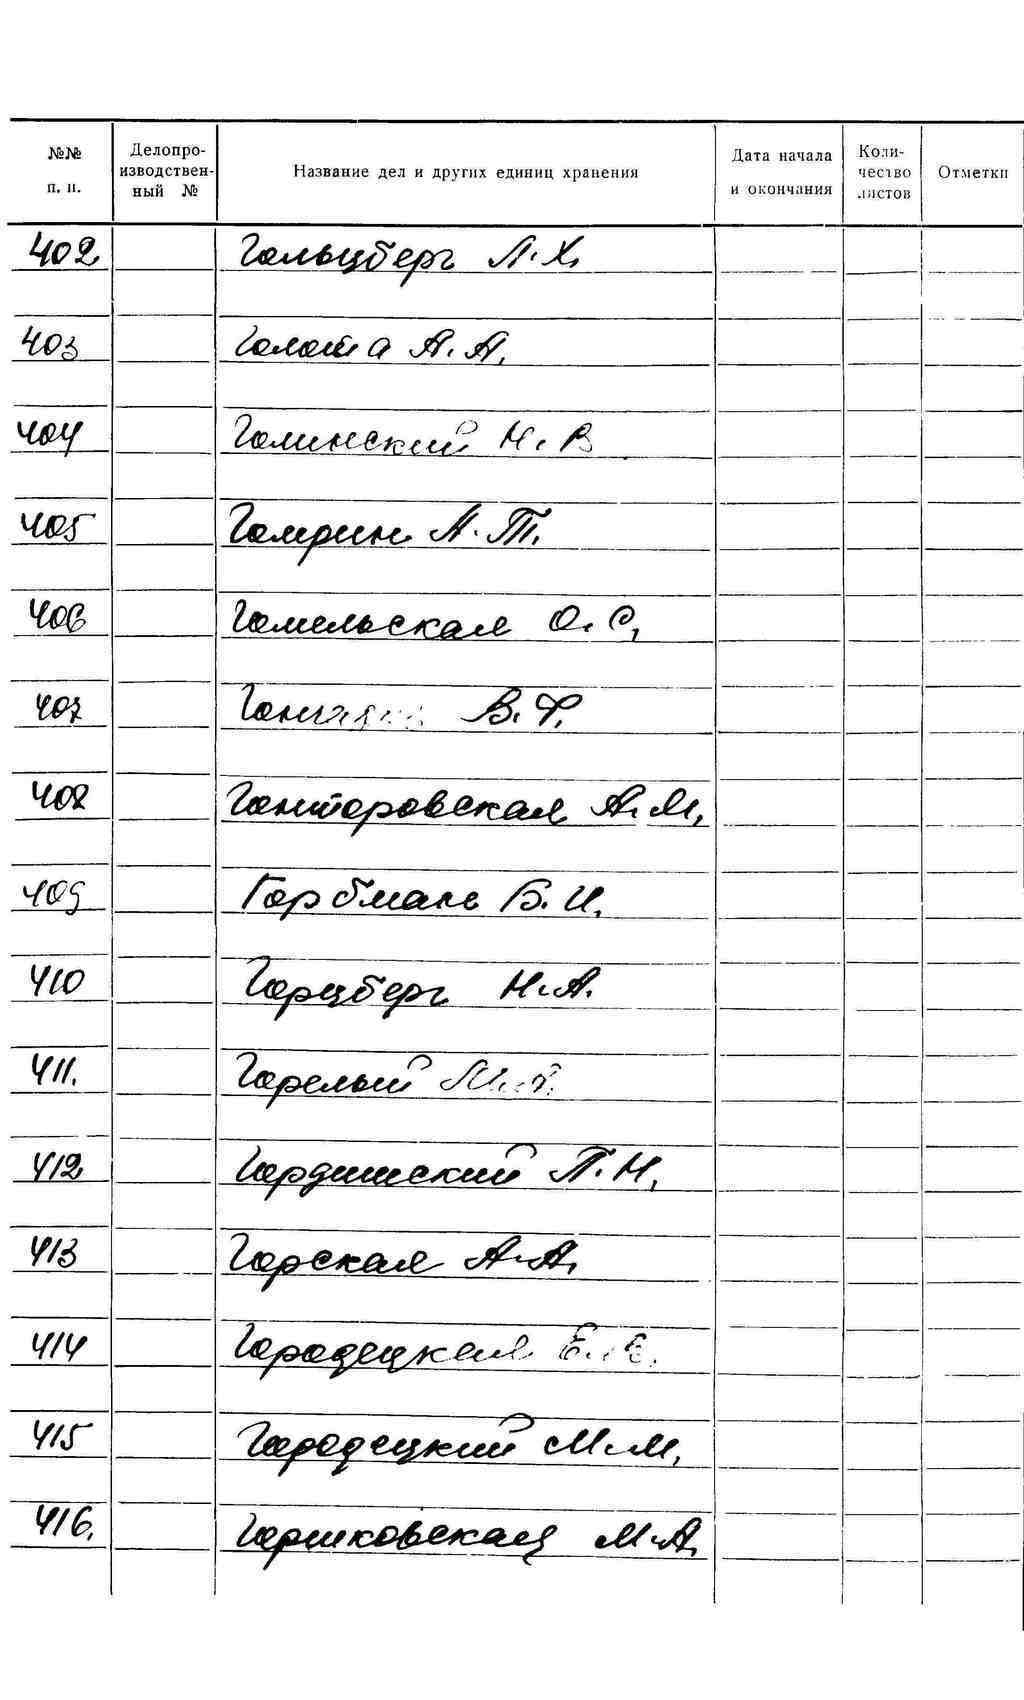 №№ п. п. Делопроизводственный № Название дел и других единиц хранения Дата начала и окончания Количество листов Отметки
402 Гольцберг Л. Х.
403 Голота А. А.
404 Голинский Н. В
405 Гомрин А. Т.
406 Гомельская О. С.
407 В. Ф.
408 Гонторовская А. М.
409 Горбман Б. И.
410 Горцберг Н. А.
411. Горелый
412 П. Н.
413 Горская А. А.
414 Городецкая Е. Е.
415 Городецкий М. М.
416. Горшковская М. А.